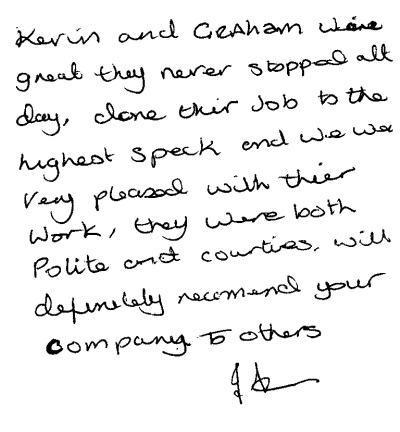 Kevin and GRAHAM were
great they never stopped all
day, done thir Job to the
highest speck and we we
very pleased with thier
work, they were both
Polite and courties. will
definetely recomend your
company to others